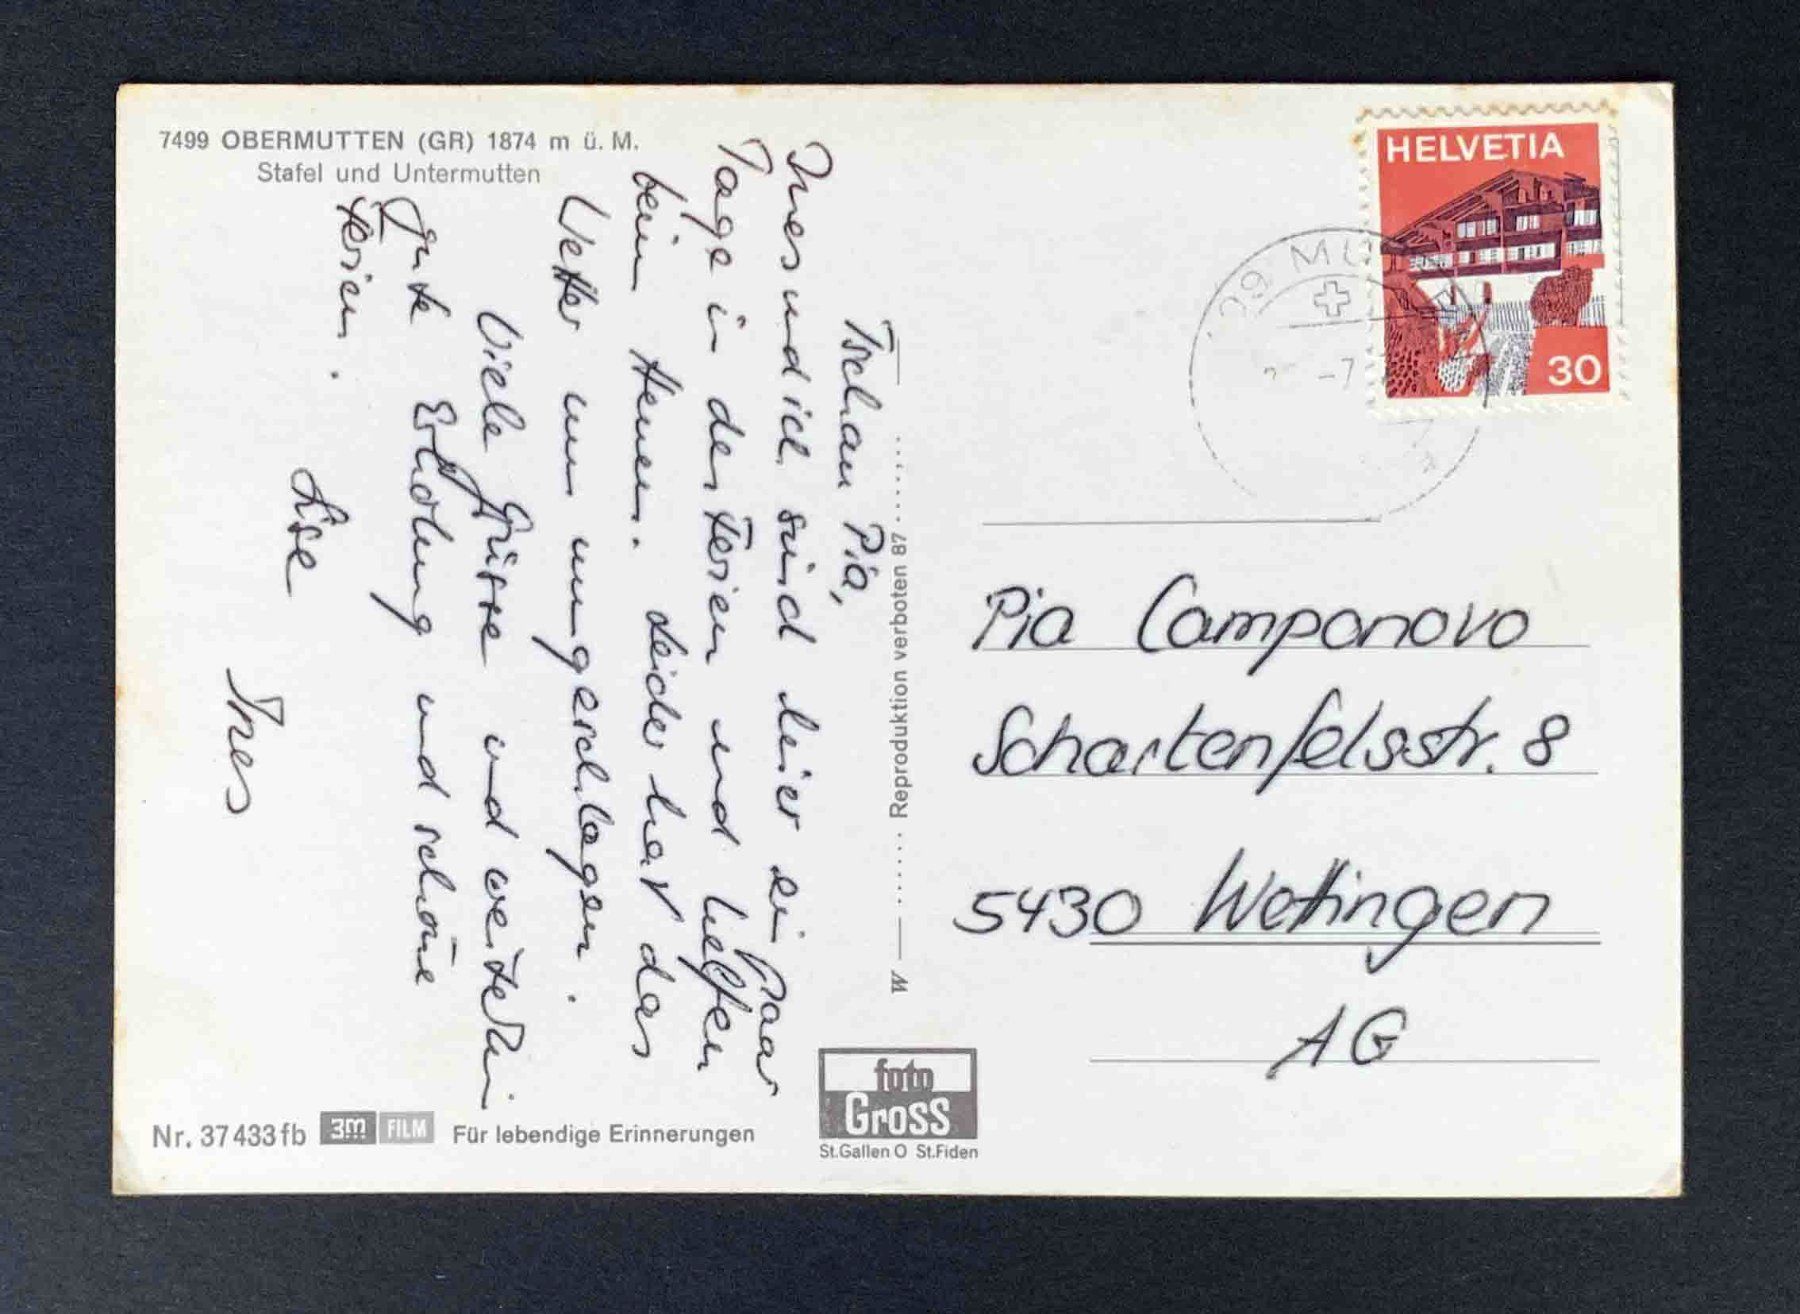 7499 OBERMUTTEN (GR) 1874 m ü. M.
Stafel und Untermutten
Tschau Pia,
Ines und ich sind hier ein paar
Tage in den Ferien und helfen
beim Heuen. Leider hat das
Wetter nun umgeschlagen.
Viele Grüsse und weiterhin
gute Erholung und schöne
Ferien.
Lise
Ines
Nr. 37433fb 3m FILM Für lebendige Erinnerungen
W Reproduktion verboten 87
foto
GROSS
St.Gallen O St.Fiden
HELVETIA
30
-7
Pia Camponovo
Schartenfelsstr. 8
5430 Wettingen
AG